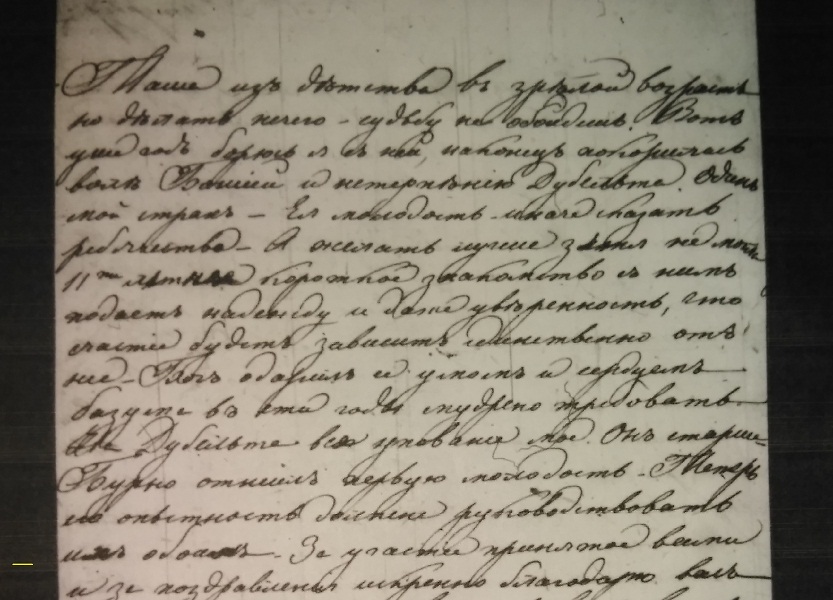 Таша изъ дѣтства въ зрѣлой возрастъ
но дѣлать нечего - судьбу не обойдешь. Вотъ
уже годъ борюсь я съ ней, наконецъ покорилась
волѣ Божіей и нетерпѣнію Дубельта. Одинъ
мой страхъ - Ея молодость иначе сказать
ребячество - А желать лучше зятя не могу
11ти лѣтнее короткое знакомство съ нимъ
подаетъ надежду и даже увѣренность, что
счастіе будетъ зависить единственно отъ
нее - Богъ одарилъ ее умомъ и сердцемъ
въ эти годы мудрено требовать
Дубельта все упованіе мое. Онъ старше
Бурно отжилъ первую молодость - Теперь
его опытность должна руководствовать
ихъ обоихъ - За участіе принятое вами
и за поздравленія искренно благодарю васъ